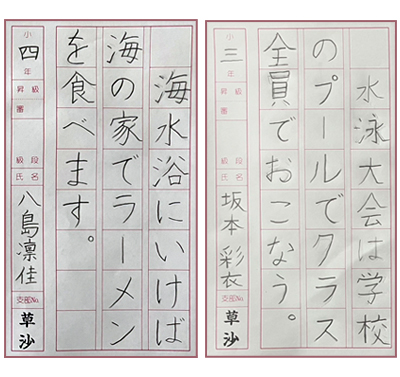 海水浴にいけば
海の家でラーメン
を食べます。
小四年
昇級審
級段
氏名
八島凛佳
支部No.
草沙
水泳大会は学校
のプールでクラス
全員でおこなう。
小三年
昇級審
級段
氏名
坂本彩衣
支部No.
草沙